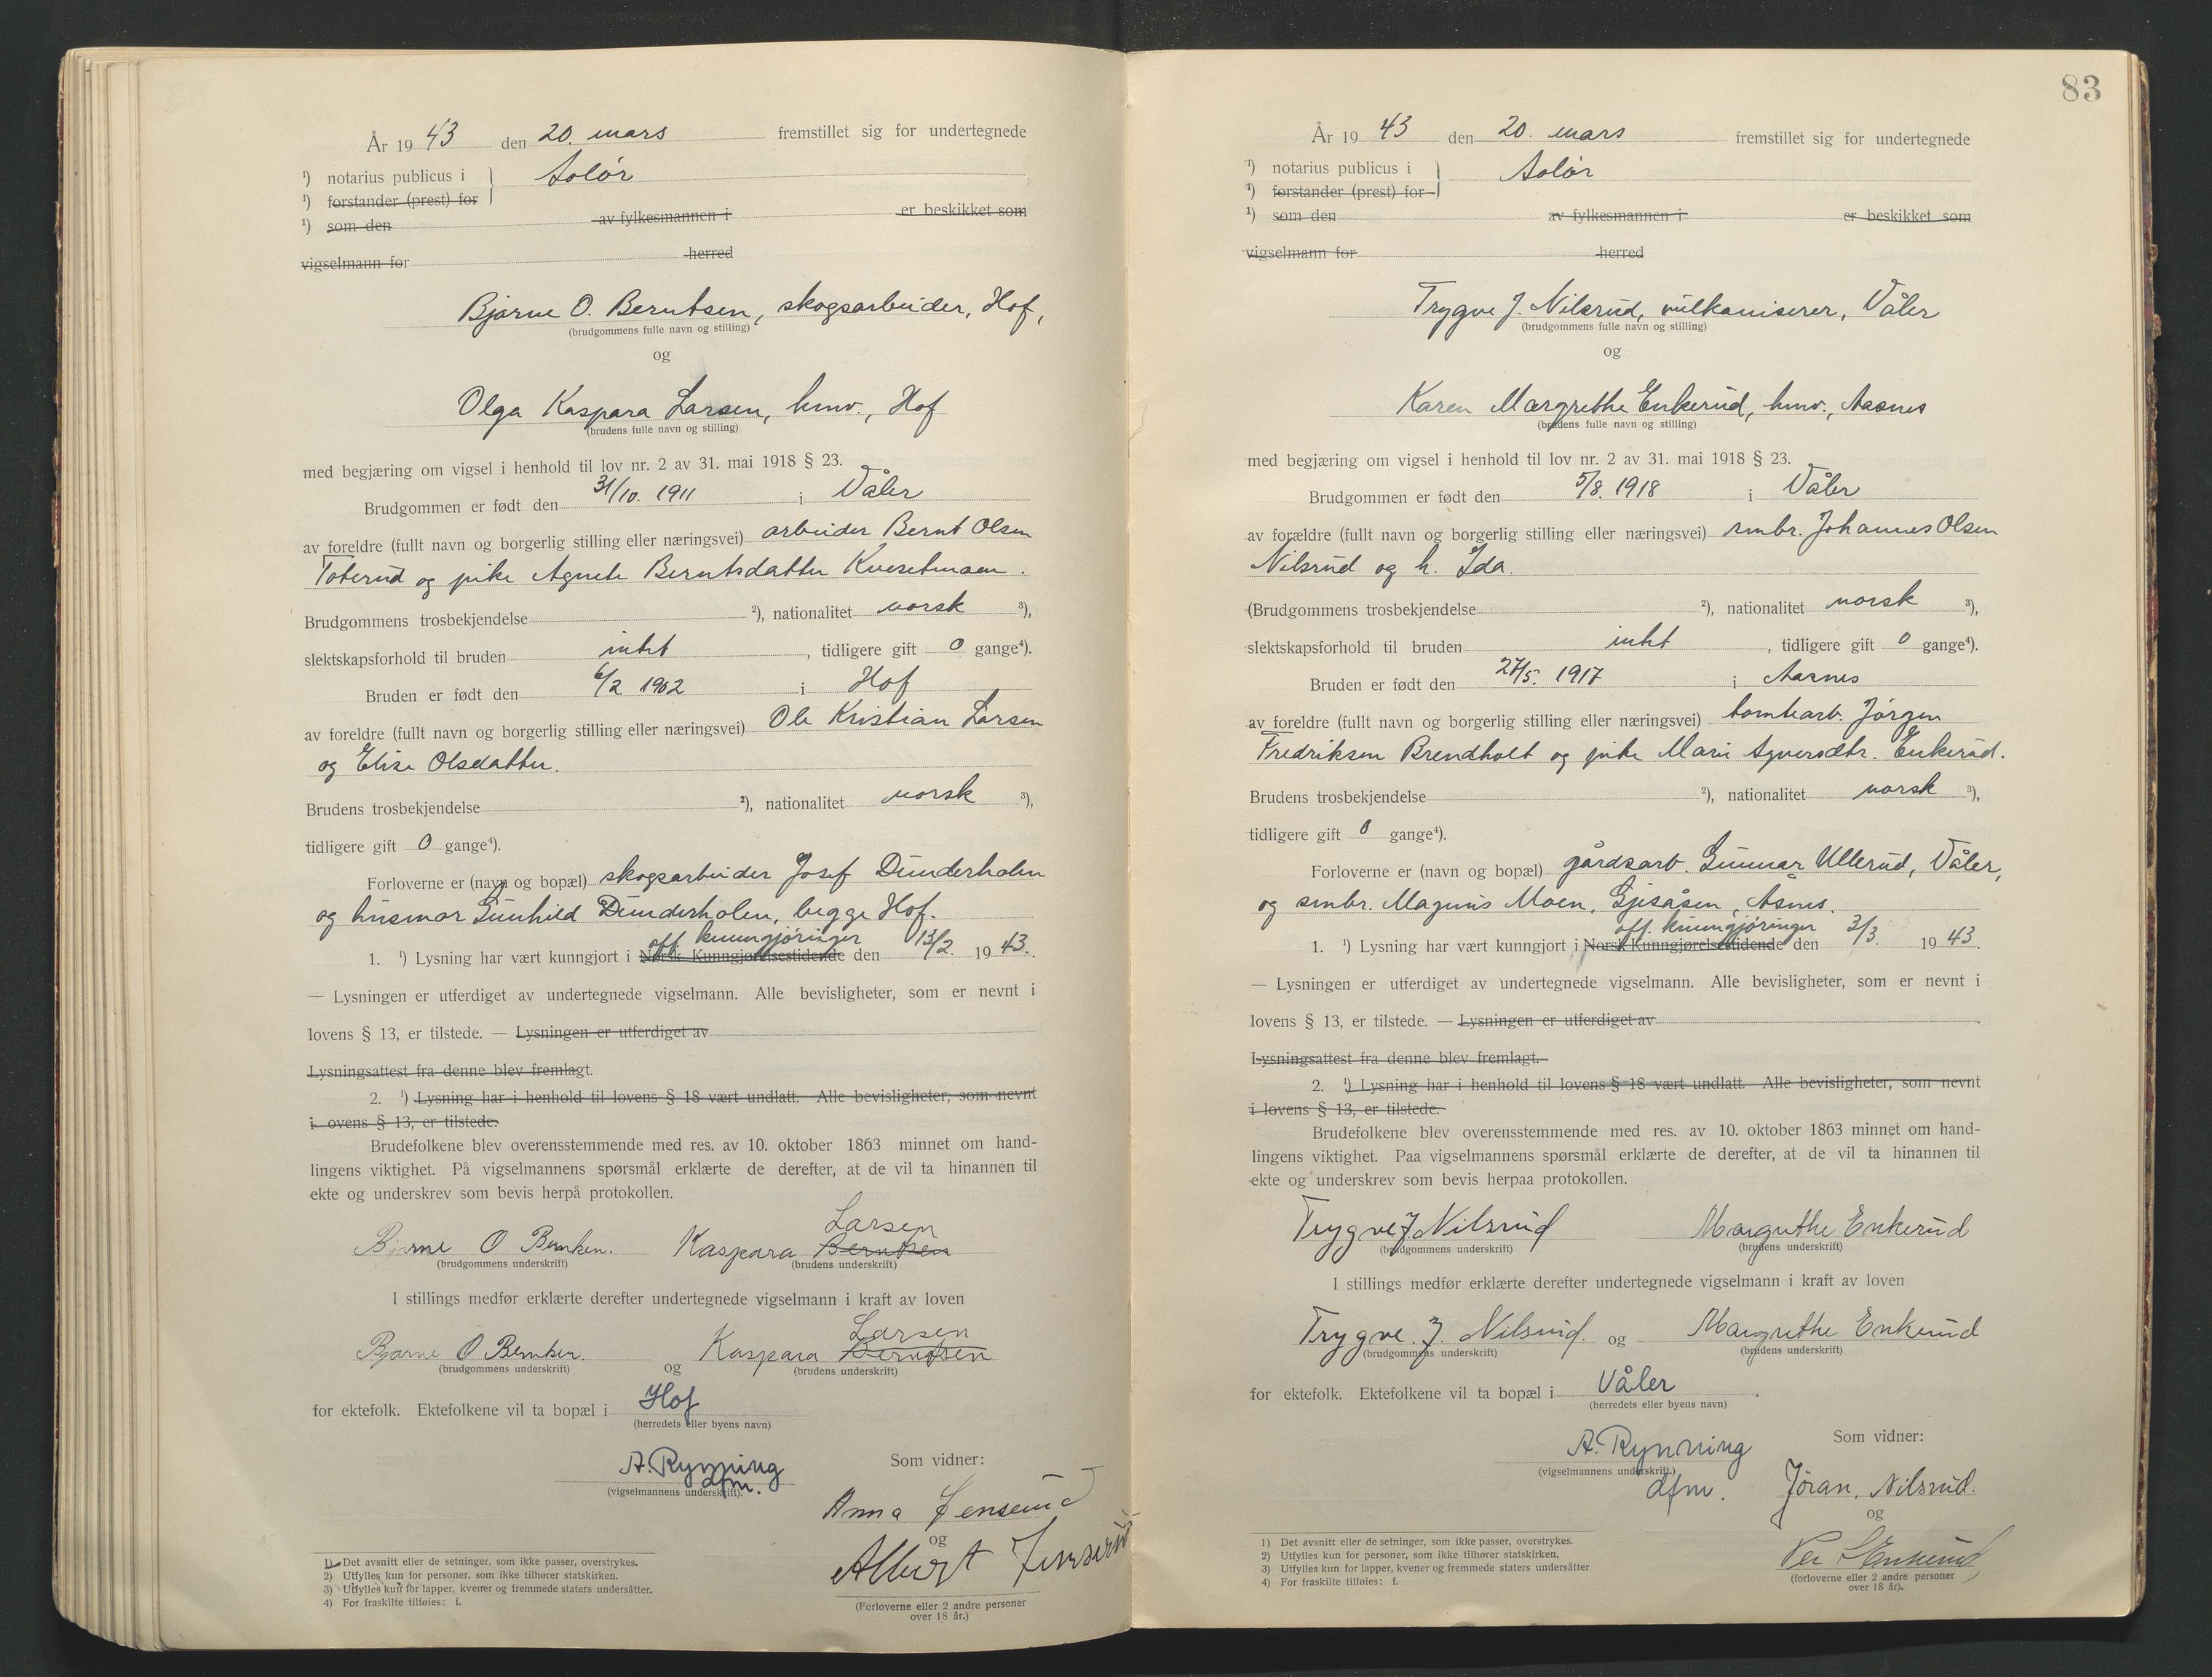 År 1943 den 20. mars fremstillet sig for undertegnede
¹) notarius publicus i } Solør
¹) forstander (prest) for
¹) som den av fylkesmannen i er beskikket som
vigselmann for herred
Bjarne O. Berntsen, skogsarbeider, Hof,
(brudgommens fulle navn og stilling)
og
Olga Kaspara Larsen, hmv., Hof
(brudens fulle navn og stilling)
med begjæring om vigsel i henhold til lov nr. 2 av 31. mai 1918 § 23.
Brudgommen er født den 31/10. 1911 i Våler
av foreldre (fullt navn og borgerlig stilling eller næringsvei) arbeider Bernt Olsen
Toterud og pike Agnete Berntsdatter Kvesetmoen.
Brudgommens trosbekjendelse ²), nationalitet norsk ³),
slektskapsforhold til bruden intet, tidligere gift 0 gange⁴).
Bruden er født den 6/2 1902 i Hof
av foreldre (fullt navn og borgerlig stilling eller næringsvei) Ole Kristian Larsen
og Elise Olsdatter.
Brudens trosbekjendelse ²), nationalitet norsk ³),
tidligere gift 0 gange⁴).
Forloverne er (navn og bopæl) skogsarbeider Josef Dunderholen
og husmor Gunhild Dunderholen, begge Hof.
off. kunngjøringer
1. ¹) Lysning har vært kunngjort i Norsk Kunngjørelsestidende den 13/2. 1943.
— Lysningen er utferdiget av undertegnede vigselmann. Alle bevisligheter, som er nevnt i
lovens § 13, er tilstede. — Lysningen er utferdiget av
Lysningsattest fra denne blev fremlagt.
2. ¹) Lysning har i henhold til lovens § 18 vært undlatt. Alle bevisligheter, som nevnt
i ovens § 13, er tilstede.
Brudefolkene blev overensstemmende med res. av 10. oktober 1863 minnet om hand-
lingens viktighet. På vigselmannens spørsmål erklærte de derefter, at de vil ta hinannen til
ekte og underskrev som bevis herpå protokollen.
Larsen
Bjarne O Berntsen. Kaspara Berntsen
(brudgommens underskrift) (brudens underskrift)
I stillings medfør erklærte derefter undertegnede vigselmann i kraft av loven
Larsen
Bjarne O Berntsen. og Kaspara Berntsen
(brudgommens underskrift) (brudens underskrift)
for ektefolk. Ektefolkene vil ta bopæl i Hof
(herredets eller byens navn)
Som vidner:
A. Rynning
dfm.
(vigselmannens underskrift).
Anna Jenserud
og
Albert Jenserud
(Forloverne eller 2 andre personer
over 18 år.)
1) Det avsnitt eller de setninger, som ikke passer, overstrykes.
2) Utfylles kun for personer, som ikke tilhører statskirken.
3) Utfylles kun for lapper, kvener og fremmede staters undersåtter.
4) For fraskilte tilføies: f.
83
År 1943 den 20. mars fremstillet sig for undertegnede
¹) notarius publicus i } Solør
¹) forstander (prest) for
¹) som den av fylkesmannen i er beskikket som
vigselmann for herred
Trygve J. Nilsrud, vulkaniserer, Våler
(brudgommens fulle navn og stilling)
og
Karen Margrethe Enkerud, hmv., Aasnes
(brudens fulle navn og stilling)
med begjæring om vigsel i henhold til lov nr. 2 av 31. mai 1918 § 23.
Brudgommen er født den 5/8. 1918 i Våler
av forældre (fullt navn og borgerlig stilling eller næringsvei) smbr. Johannes Olsen
Nilsrud og h. Ida.
(Brudgommens trosbekjendelse ²), nationalitet norsk ³),
slektskapsforhold til bruden intet, tidligere gift 0 gange⁴).
Bruden er født den 27/5. 1917 i Aasnes
av foreldre (fullt navn og borgerlig stilling eller næringsvei) tomtearb. Jørgen
Fredriksen Brendholt og pike Mari Enkerud.
Brudens trosbekjendelse ²), nationalitet norsk ³),
tidligere gift 0 gange⁴).
Forloverne er (navn og bopæl) gårdsarb. Gunnar Ullerud, Våler,
og smbr. Magnus Moen, Gjesåsen, Åsnes.
off. kunngjøringer
1. ¹) Lysning har vært kunngjort i Norsk Kunngjørelsestidende den 3/3. 1943.
— Lysningen er utferdiget av undertegnede vigselmann. Alle bevisligheter, som er nevnt i
lovens § 13, er tilstede. — Lysningen er utferdiget av
Lysningsattest fra denne blev fremlagt.
2. ¹) Lysning har i henhold til lovens § 18 vært undlatt. Alle bevisligheter, som nevnt
i lovens § 13, er tilstede.
Brudefolkene blev overensstemmende med res. av 10. oktober 1863 minnet om hand-
lingens viktighet. Paa vigselmannens spørsmål erklærte de derefter, at de vil ta hinannen til
ekte og underskrev som bevis herpaa protokollen.
Trygve J Nilsrud Margrethe Enkerud
(brudgommens underskrift) (brudens underskrift)
I stillings medfør erklærte derefter undertegnede vigselmann i kraft av loven
Trygve. J. Nilsrud. og Margrethe Enkerud
(brudgommens underskrift) (brudens underskrift)
for ektefolk. Ektefolkene vil ta bopæl i Våler.
(herredets eller byens navn)
Som vidner:
A. Rynning
(vigselmannens underskrift.)
dfm.
Jöran. Nilsrud.
og
Per Enkerud
(forloverne eller 2 andre personer
over 18 år).
1) Det avsnitt eller de setninger, som ikke passer, overstrykes.
2) Utfylles kun for personer, som ikke tilhører statskirken.
3) Utfylles kun for lapper, kvener og fremmede staters undersåtter
4) For fraskilte tilføies: f.